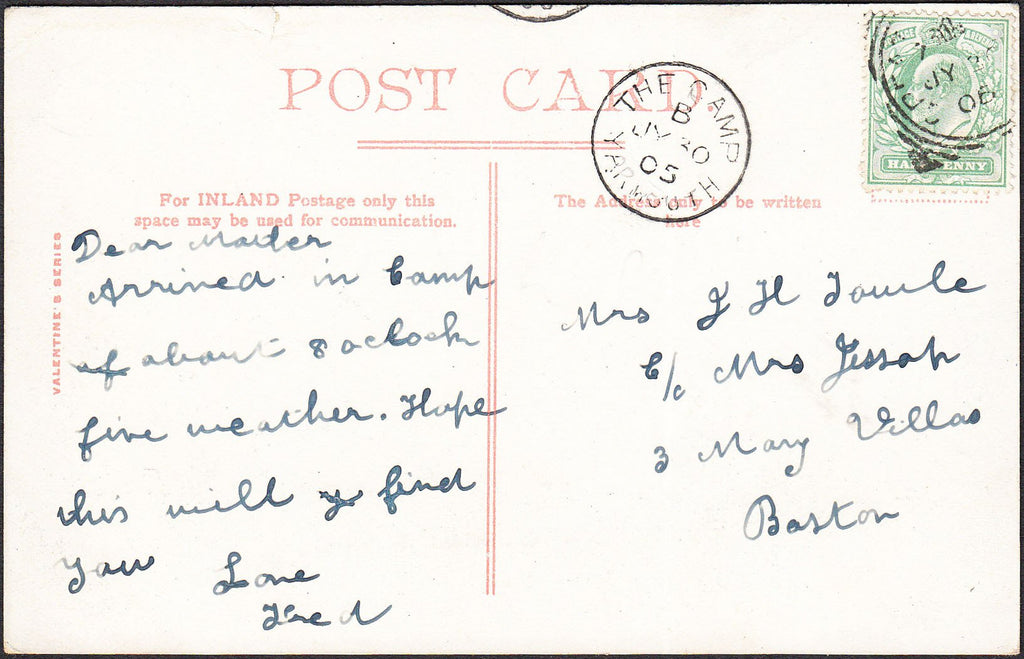 POST CARD.
THE CAMP
B
JY 30
05
YARMOUTH
JY
05
HALFPENNY
For INLAND Postage only this
space may be used for communication.
The Address only to be written
here
VALENTINE'S SERIES
Dear Mater
Arrived in Camp
at about 8 oclock
fine weather. Hope
this will find
you Love
Fred
Mrs J H Towle
C/o Mrs Jessop
3 Mary Villas
Boston